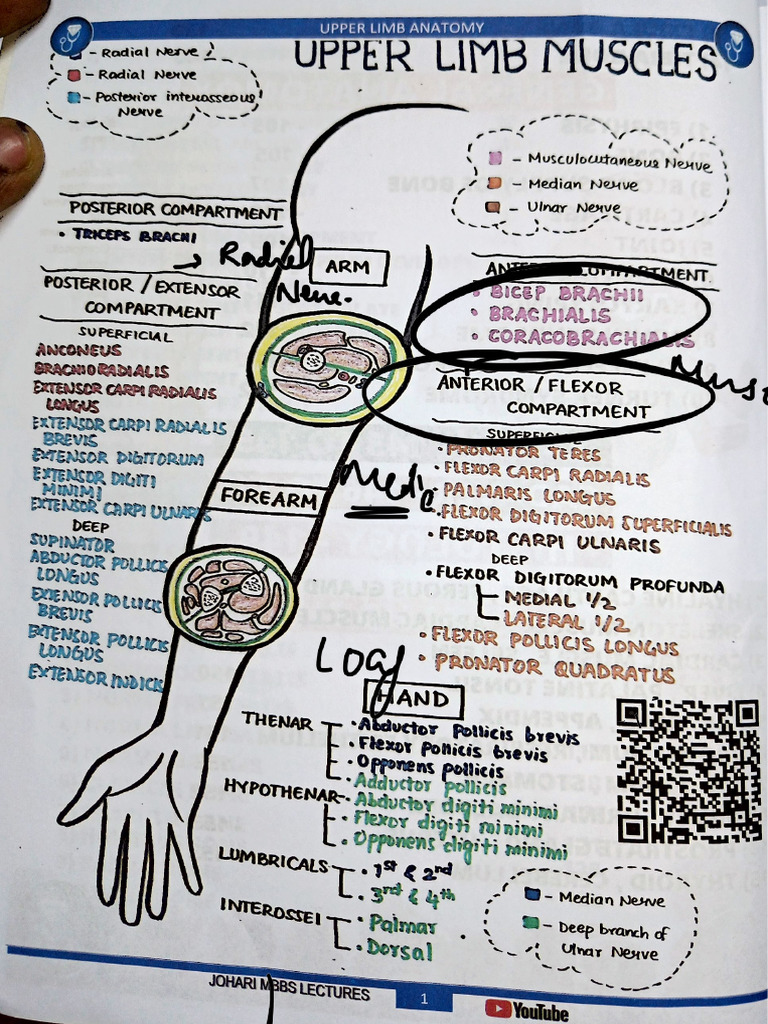 UPPER LIMB ANATOMY
UPPER LIMB MUSCLES
- Radial Nerve
- Radial Nerve
- Posterior interosseous
Nerve
- Musculocutaneous Nerve
- Median Nerve
- Ulnar Nerve
POSTERIOR COMPARTMENT
• TRICEPS BRACHI
→ Radial
Nerve.
POSTERIOR / EXTENSOR
COMPARTMENT
SUPERFICIAL
ANCONEUS
BRACHIORADIALIS
EXTENSOR CARPI RADIALIS
LONGUS
EXTENSOR CARPI RADIALIS
BREVIS
EXTENSOR DIGITORUM
EXTENSOR DIGITI
MINIMI
EXTENSOR CARPI ULNARIS
DEEP
SUPINATOR
ABDUCTOR POLLICIS
LONGUS
EXTENSOR POLLICIS
BREVIS
EXTENSOR POLLICIS
LONGUS
EXTENSOR INDICIS
ARM
FOREARM
ANTERIOR COMPARTMENT
• BICEP BRACHII
• BRACHIALIS
• CORACOBRACHIALIS
ANTERIOR / FLEXOR
COMPARTMENT
SUPERFICIAL
• PRONATOR TERES
• FLEXOR CARPI RADIALIS
• PALMARIS LONGUS
• FLEXOR DIGITORUM SUPERFICIALIS
• FLEXOR CARPI ULNARIS
DEEP
• FLEXOR DIGITORUM PROFUNDA
MEDIAL 1/2
LATERAL 1/2
• FLEXOR POLLICIS LONGUS
• PRONATOR QUADRATUS
HAND
THENAR
• Abductor pollicis brevis
• Flexor pollicis brevis
• Opponens pollicis
Adductor pollicis
HYPOTHENAR
• Abductor digiti minimi
• Flexor digiti minimi
• Opponens digiti minimi
LUMBRICALS
• 1st & 2nd
• 3rd & 4th
INTEROSSEI
• Palmar
• Dorsal
- Median Nerve
- Deep branch of
Ulnar Nerve
JOHARI MBBS LECTURES
1
YouTube